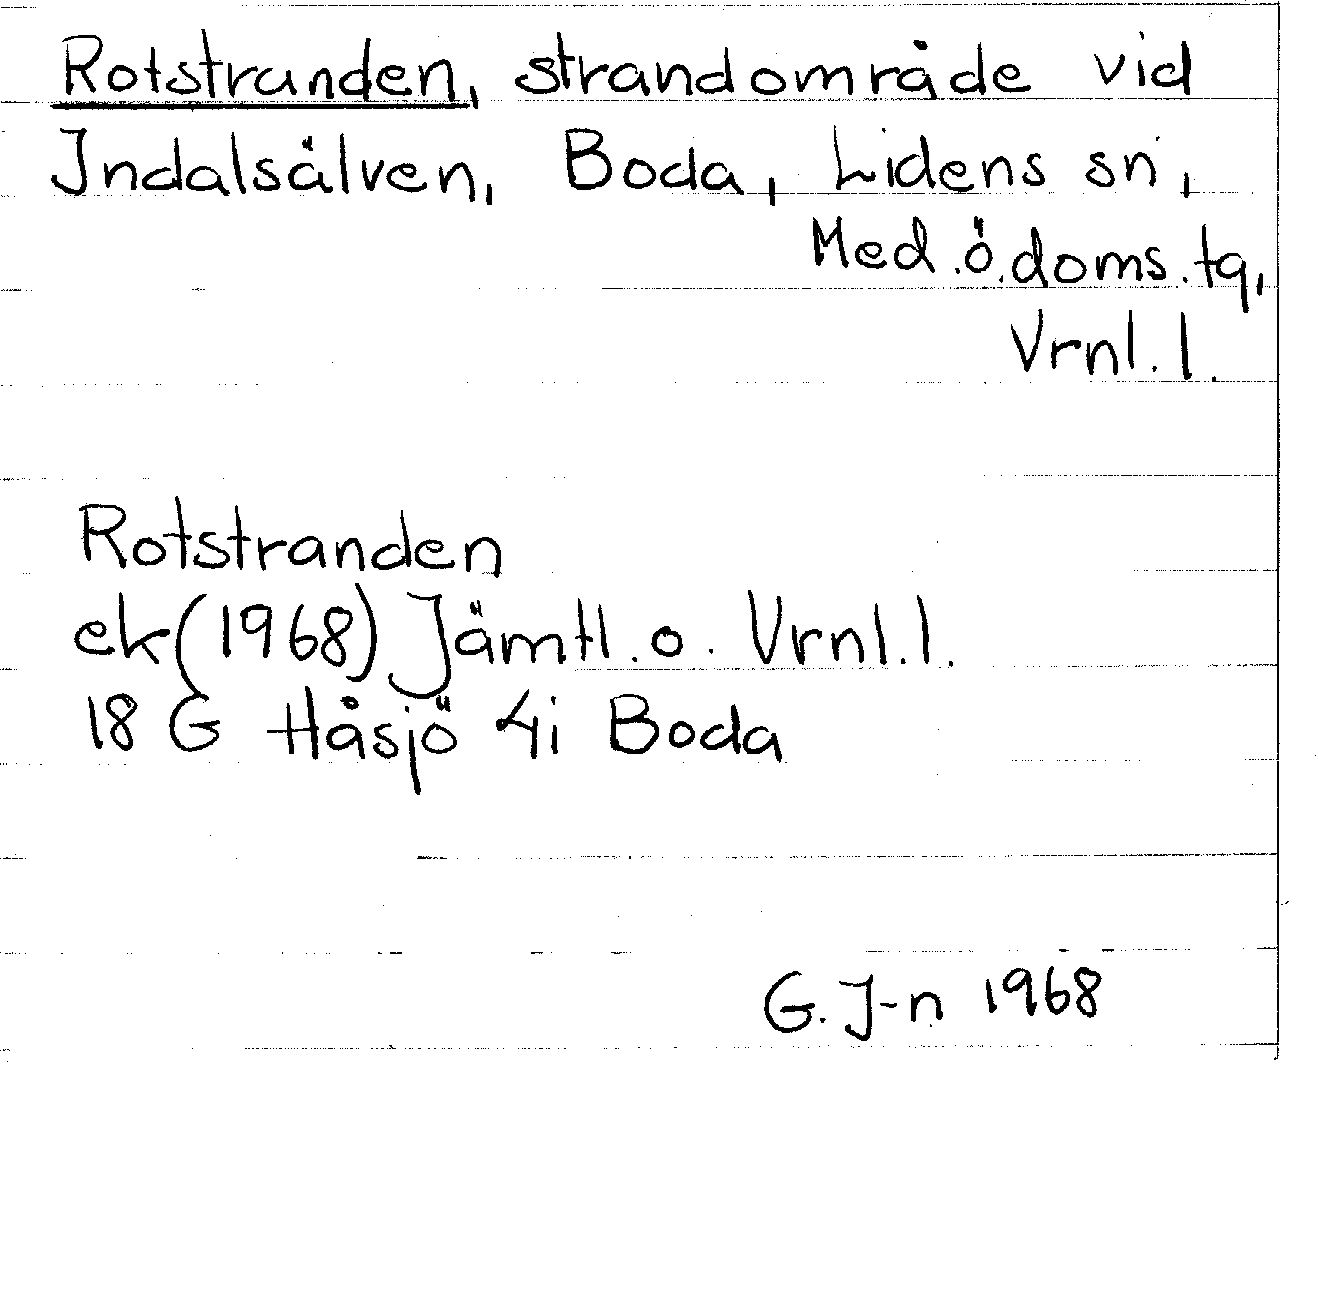 Rotstranden, strandområde vid
Indalsälven, Boda, Lidens sn,
Med.ö.doms.tg,
Vrnl.l.
Rotstranden
ek(1968) Jämtl.o. Vrnl.l.
18 G Håsjö 4i Boda
G. J-n 1968